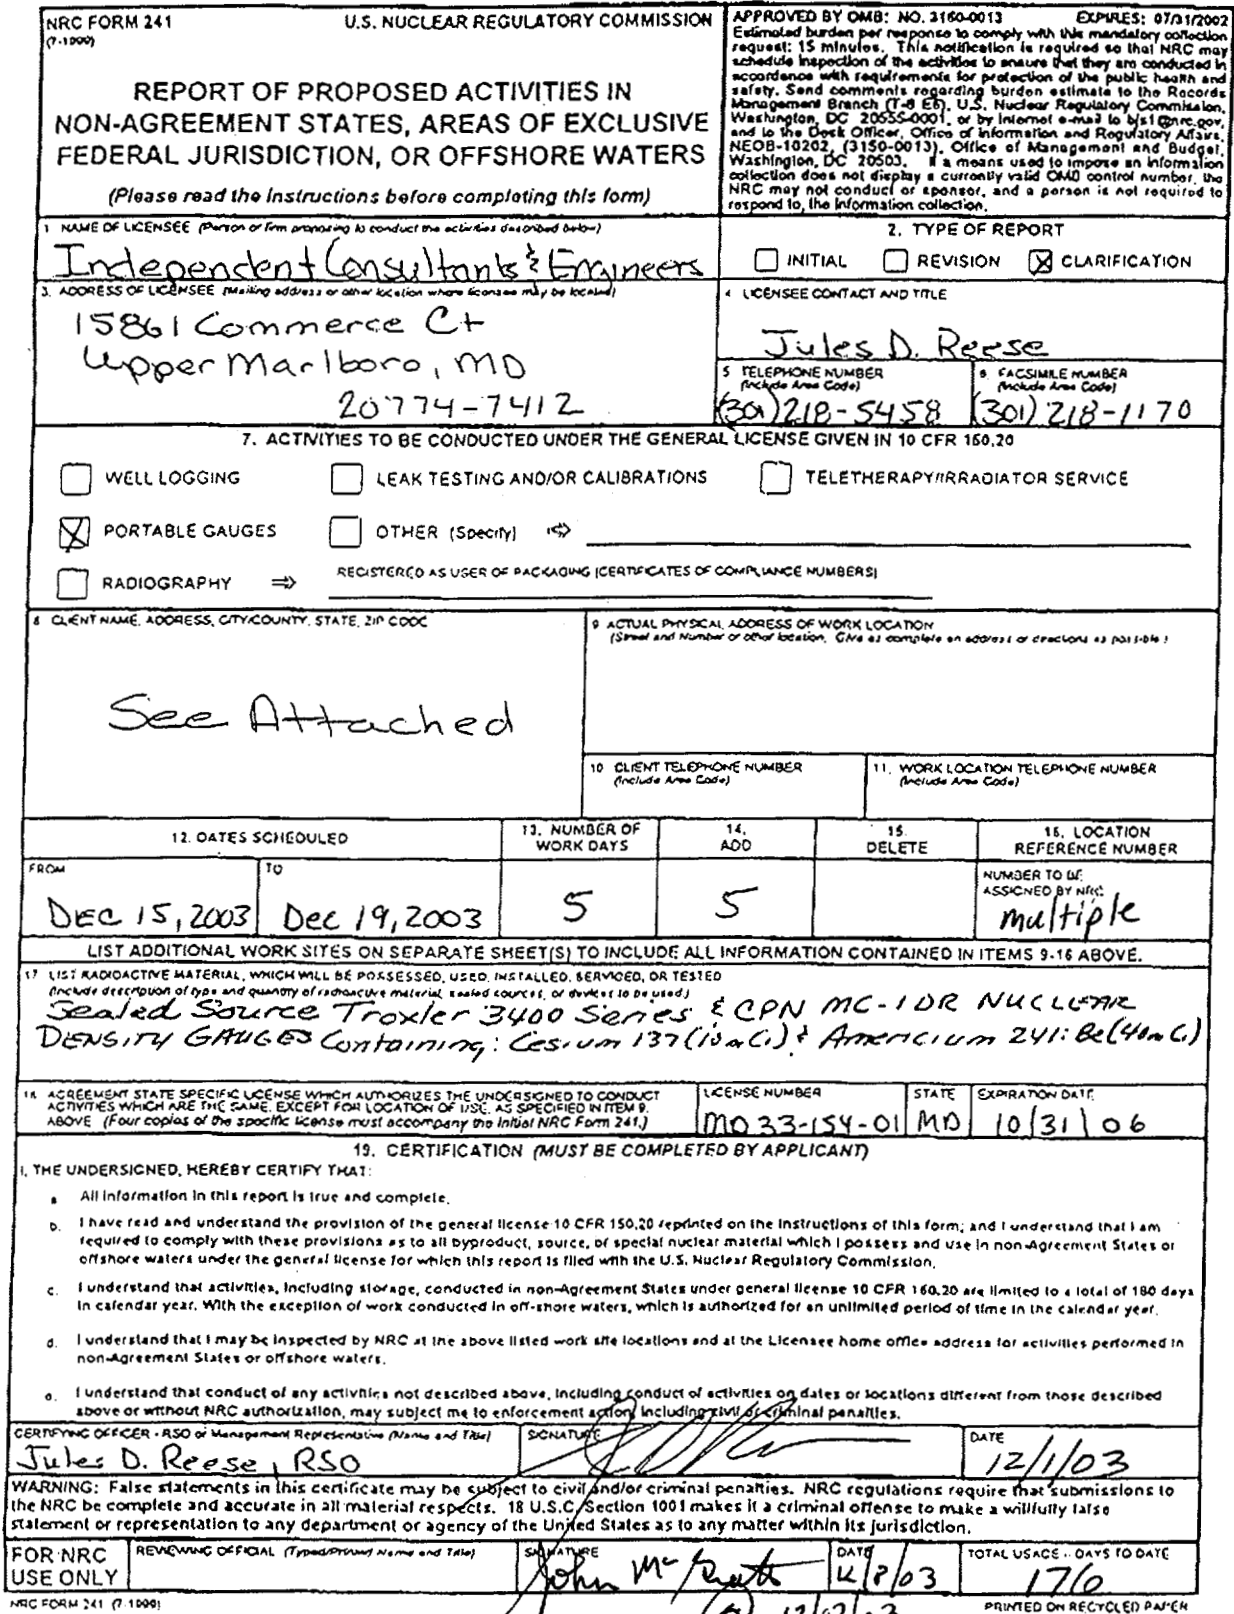 NRC FORM 241
(7-1999)
U.S. NUCLEAR REGULATORY COMMISSION
REPORT OF PROPOSED ACTIVITIES IN
NON-AGREEMENT STATES, AREAS OF EXCLUSIVE
FEDERAL JURISDICTION, OR OFFSHORE WATERS
(Please read the instructions before completing this form)
APPROVED BY OMB: NO. 3150-0013 EXPIRES: 07/31/2002
Estimated burden per response to comply with this mandatory collection
request: 15 minutes. This notification is required so that NRC may
schedule inspection of the activities to ensure that they are conducted in
accordance with requirements for protection of the public health and
safety. Send comments regarding burden estimate to the Records
Management Branch (T-6 E6), U.S. Nuclear Regulatory Commission,
Washington, DC 20555-0001, or by Internet e-mail to bjs1@nrc.gov,
and to the Desk Officer, Office of Information and Regulatory Affairs,
NEOB-10202, (3150-0013), Office of Management and Budget,
Washington, DC 20503. If a means used to impose an information
collection does not display a currently valid OMB control number, the
NRC may not conduct or sponsor, and a person is not required to
respond to, the information collection.
1 NAME OF LICENSEE (Person or firm proposing to conduct the activities described below)
Independent Consultants & Engineers
2. TYPE OF REPORT
INITIAL REVISION X CLARIFICATION
3. ADDRESS OF LICENSEE (Mailing address or other location where licensee may be located)
15861 Commerce Ct
Upper Marlboro, MD
20774-7412
4 LICENSEE CONTACT AND TITLE
Jules D. Reese
5 TELEPHONE NUMBER
(Include Area Code)
(301)218-5458
6. FACSIMILE NUMBER
(Include Area Code)
(301)218-1170
7. ACTIVITIES TO BE CONDUCTED UNDER THE GENERAL LICENSE GIVEN IN 10 CFR 150.20
WELL LOGGING LEAK TESTING AND/OR CALIBRATIONS TELETHERAPY/IRRADIATOR SERVICE
X PORTABLE GAUGES OTHER (Specify) ⇨
RADIOGRAPHY ⇒ REGISTERED AS USER OF PACKAGING (CERTIFICATES OF COMPLIANCE NUMBERS)
8 CLIENT NAME, ADDRESS, CITY/COUNTY, STATE, ZIP CODE
See Attached
9 ACTUAL PHYSICAL ADDRESS OF WORK LOCATION
(Street and Number or other location. Give as complete an address or directions as possible)
10 CLIENT TELEPHONE NUMBER
(Include Area Code)
11. WORK LOCATION TELEPHONE NUMBER
(Include Area Code)
12. DATES SCHEDULED
FROM
DEC 15, 2003
TO
Dec 19, 2003
13. NUMBER OF
WORK DAYS
5
14.
ADD
5
15.
DELETE
16. LOCATION
REFERENCE NUMBER
NUMBER TO BE
ASSIGNED BY NRC
multiple
LIST ADDITIONAL WORK SITES ON SEPARATE SHEET(S) TO INCLUDE ALL INFORMATION CONTAINED IN ITEMS 9-16 ABOVE.
17 LIST RADIOACTIVE MATERIAL, WHICH WILL BE POSSESSED, USED, INSTALLED, SERVICED, OR TESTED
(Include description of type and quantity of radioactive material, sealed sources, or devices to be used.)
Sealed Source Troxler 3400 Series & CPN MC-1DR NUCLEAR
DENSITY GAUGES Containing: Cesium 137 (10mCi) & Americium 241:Be (40mCi)
18. AGREEMENT STATE SPECIFIC LICENSE WHICH AUTHORIZES THE UNDERSIGNED TO CONDUCT
ACTIVITIES WHICH ARE THE SAME, EXCEPT FOR LOCATION OF USE, AS SPECIFIED IN ITEM 9.
ABOVE (Four copies of the specific license must accompany the initial NRC Form 241.)
LICENSE NUMBER
MD 33-154-01
STATE
MD
EXPIRATION DATE
10/31/06
19. CERTIFICATION (MUST BE COMPLETED BY APPLICANT)
I, THE UNDERSIGNED, HEREBY CERTIFY THAT:
a All information in this report is true and complete.
b. I have read and understand the provision of the general license 10 CFR 150.20 reprinted on the instructions of this form; and I understand that I am
required to comply with these provisions as to all byproduct, source, or special nuclear material which I possess and use in non-Agreement States or
offshore waters under the general license for which this report is filed with the U.S. Nuclear Regulatory Commission.
c. I understand that activities, including storage, conducted in non-Agreement States under general license 10 CFR 150.20 are limited to a total of 180 days
in calendar year. With the exception of work conducted in off-shore waters, which is authorized for an unlimited period of time in the calendar year.
d. I understand that I may be inspected by NRC at the above listed work site locations and at the Licensee home office address for activities performed in
non-Agreement States or offshore waters.
e. I understand that conduct of any activities not described above, including conduct of activities on dates or locations different from those described
above or without NRC authorization, may subject me to enforcement action, including civil or criminal penalties.
CERTIFYING OFFICER - RSO or Management Representative (Name and Title)
Jules D. Reese, RSO
SIGNATURE
DATE
12/1/03
WARNING: False statements in this certificate may be subject to civil and/or criminal penalties. NRC regulations require that submissions to
the NRC be complete and accurate in all material respects. 18 U.S.C. Section 1001 makes it a criminal offense to make a willfully false
statement or representation to any department or agency of the United States as to any matter within its jurisdiction.
FOR NRC
USE ONLY
REVIEWING OFFICIAL (Typed/Printed Name and Title)
SIGNATURE
John McGrath
DATE
12/8/03
TOTAL USAGE - DAYS TO DATE
176
NRC FORM 241 (7-1999)
PRINTED ON RECYCLED PAPER